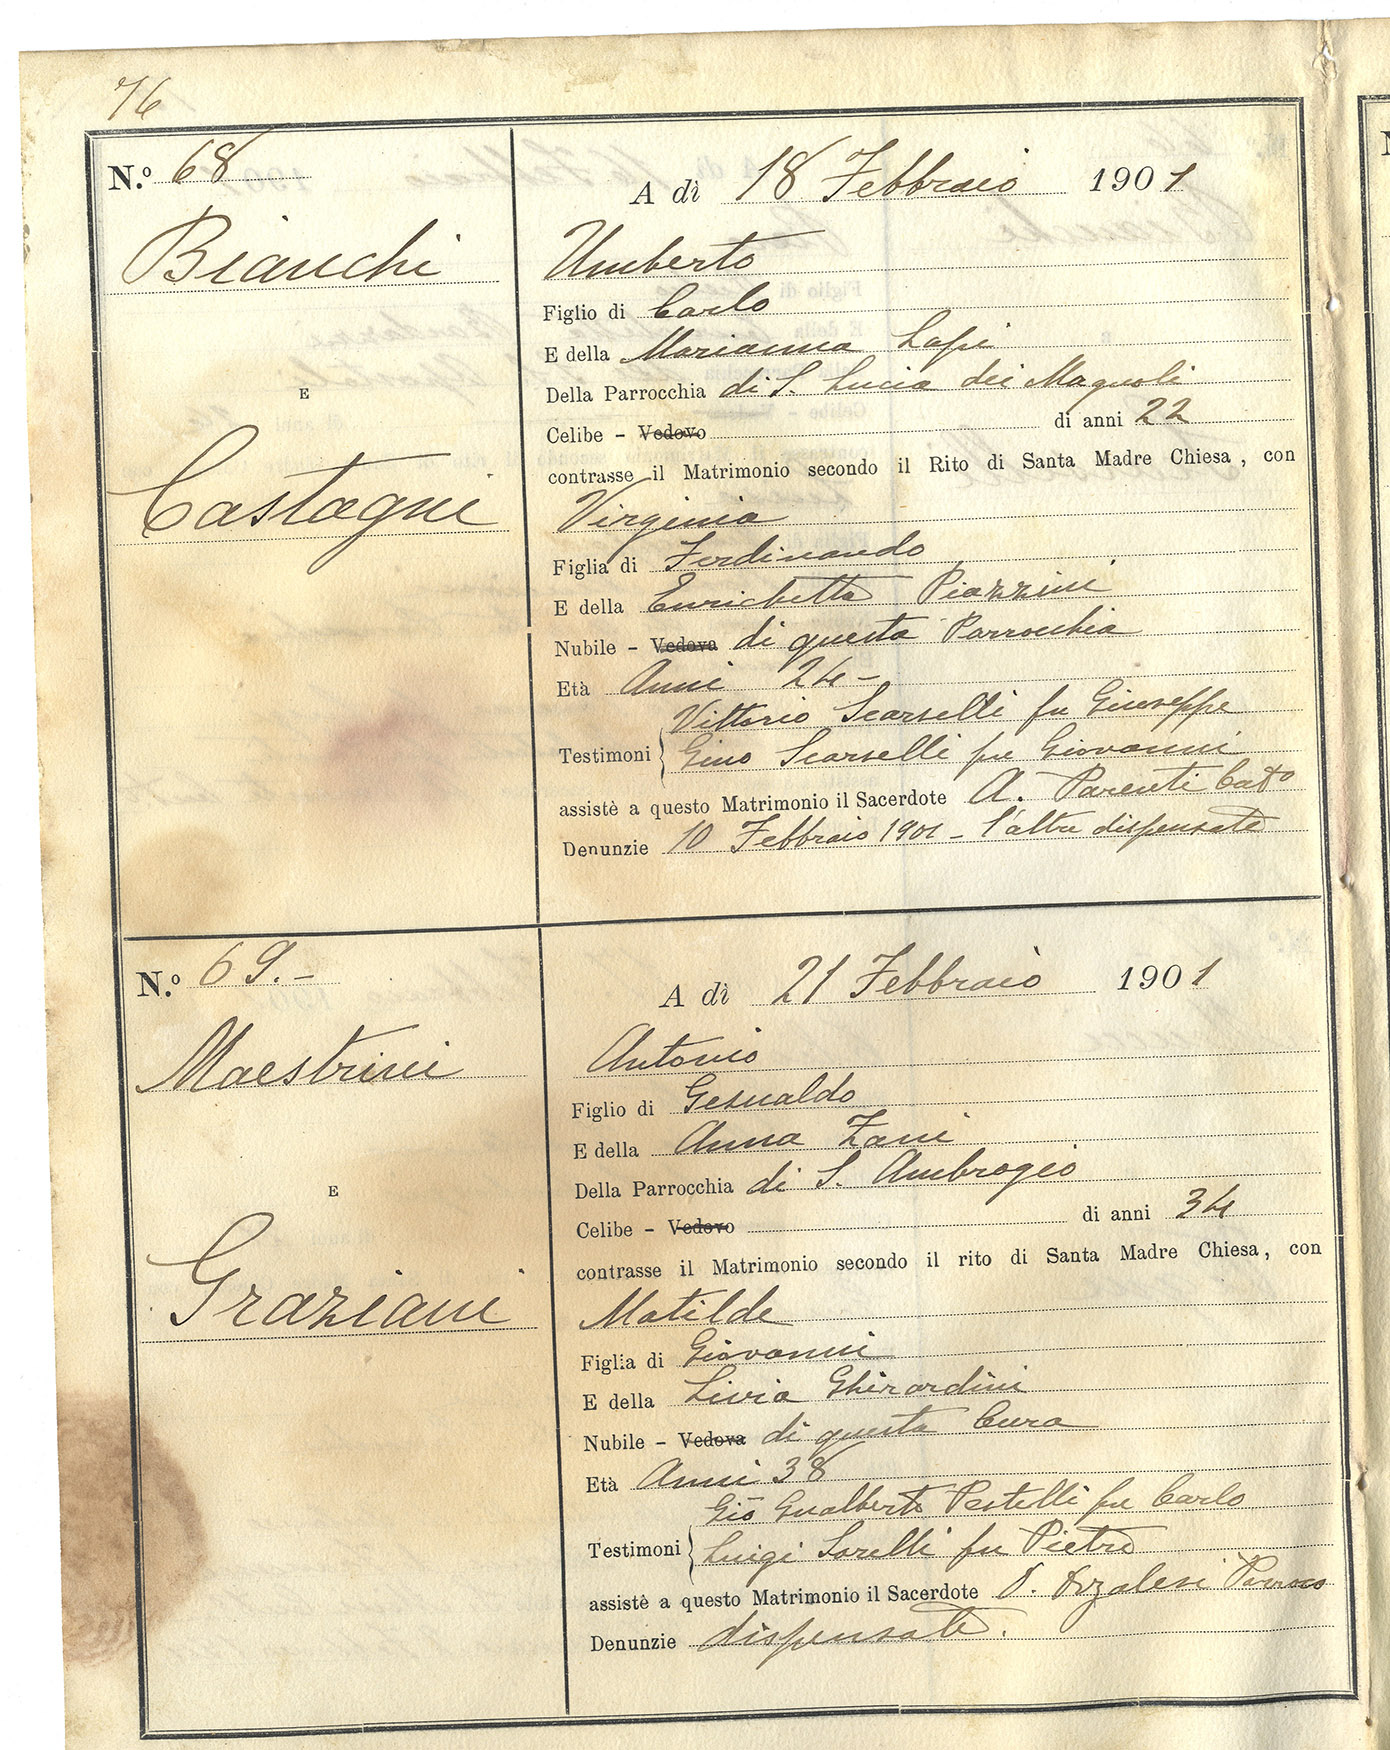 76
N.º 68
A dì 18 Febbraio 1901
Bianchi
Umberto
Figlio di Carlo
E della Marianna Lapi
E
Della Parrocchia di S. Lucia dei Magnoli
Celibe - Vedovo di anni 22
contrasse il Matrimonio secondo il Rito di Santa Madre Chiesa, con
Castagni
Virginia
Figlia di Ferdinando
E della Enrichetta Piazzini
Nubile - Vedova di questa Parrochia
Età Anni 24 -
Vittorio Scarselli fu Giuseppe
Testimoni { Gino Scarselli fu Giovanni
assistè a questo Matrimonio il Sacerdote A. Parenti
Denunzie 10 Febbraio 1901 - l'altre dispensate
N.º 69. -
A dì 21 Febbraio 1901
Maestrini
Antonio
Figlio di Gesualdo
E della Anna Zani
E
Della Parrocchia di S. Ambrogio
Celibe - Vedovo di anni 34
contrasse il Matrimonio secondo il rito di Santa Madre Chiesa, con
Graziani
Matilde
Figlia di Giovanni
E della Livia Ghirardini
Nubile - Vedova di questa Cura
Età Anni 38
Gio Gualberto Pestelli fu Carlo
Testimoni { Luigi Sorelli fu Pietro
assistè a questo Matrimonio il Sacerdote Parroco
Denunzie dispensate.